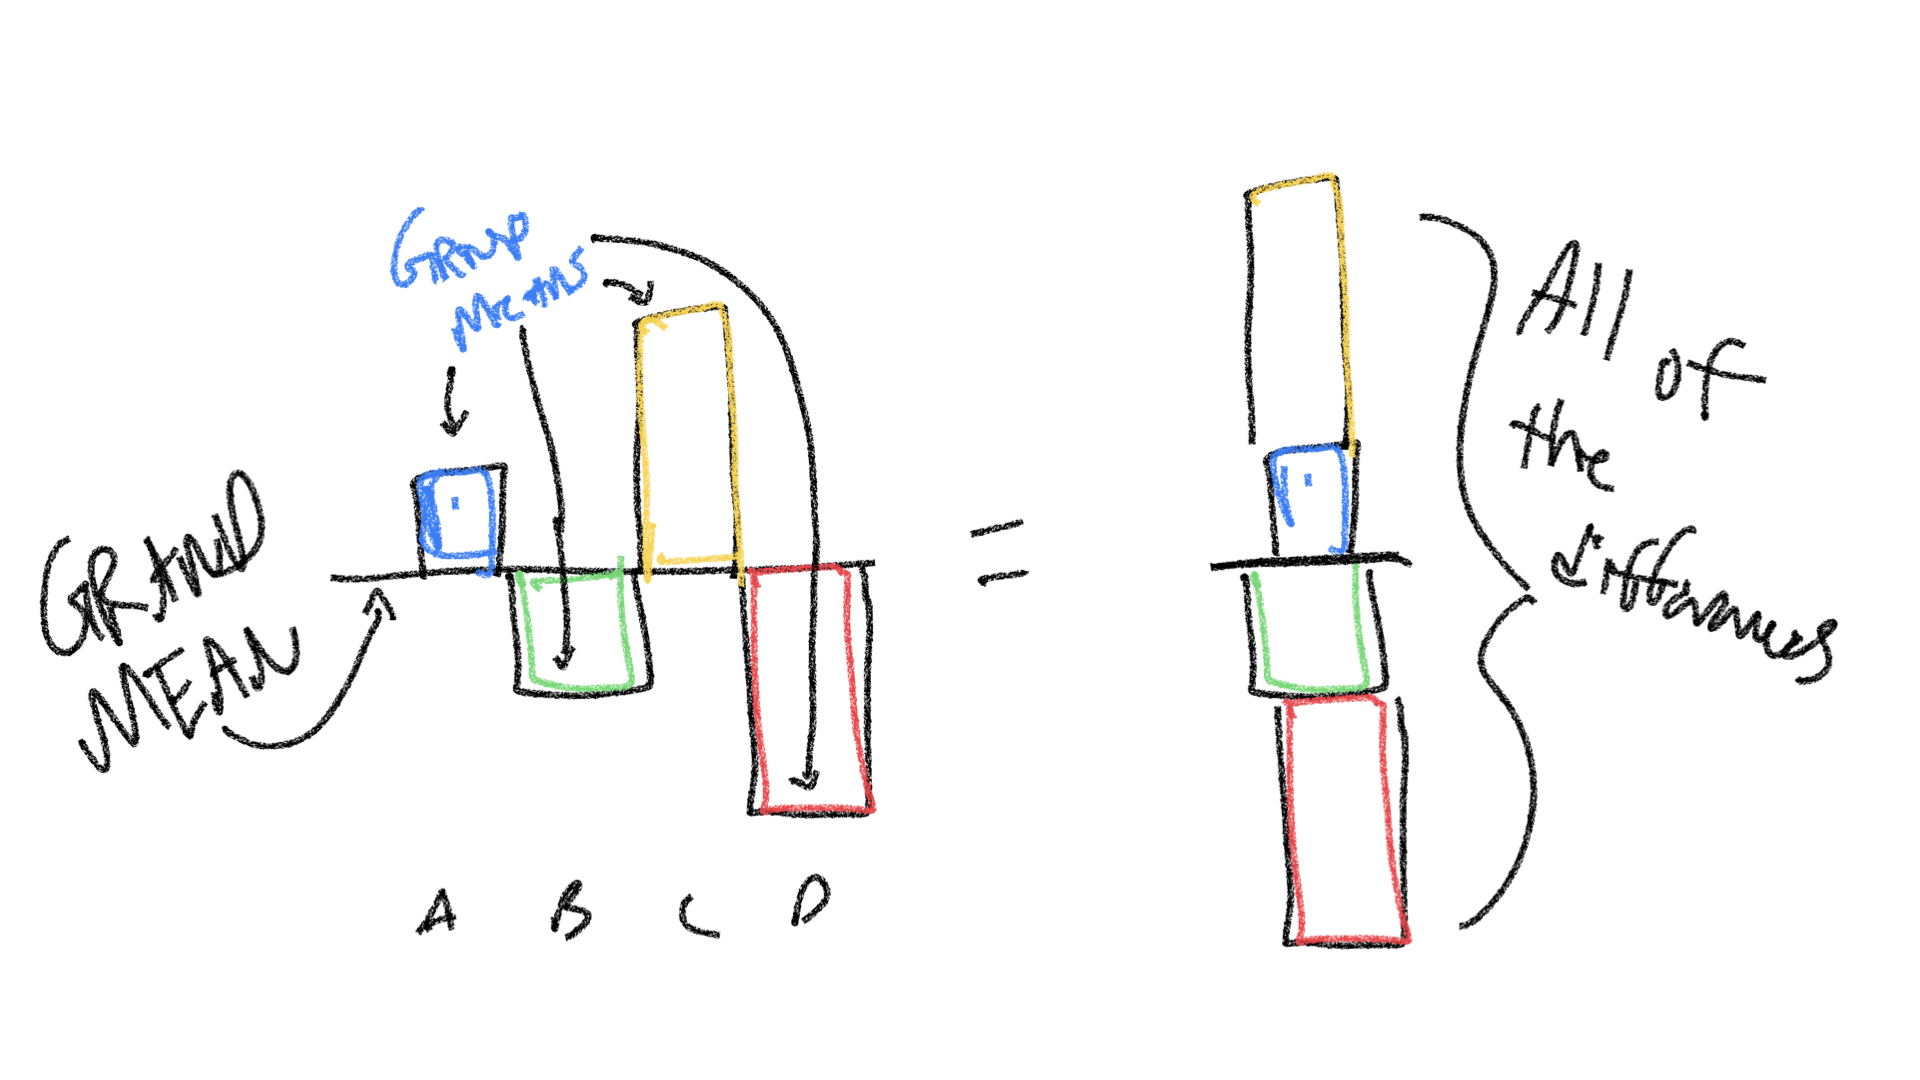 GROUP
MEANS
GRAND
MEAN
A B C D
=
All
of
the
differences